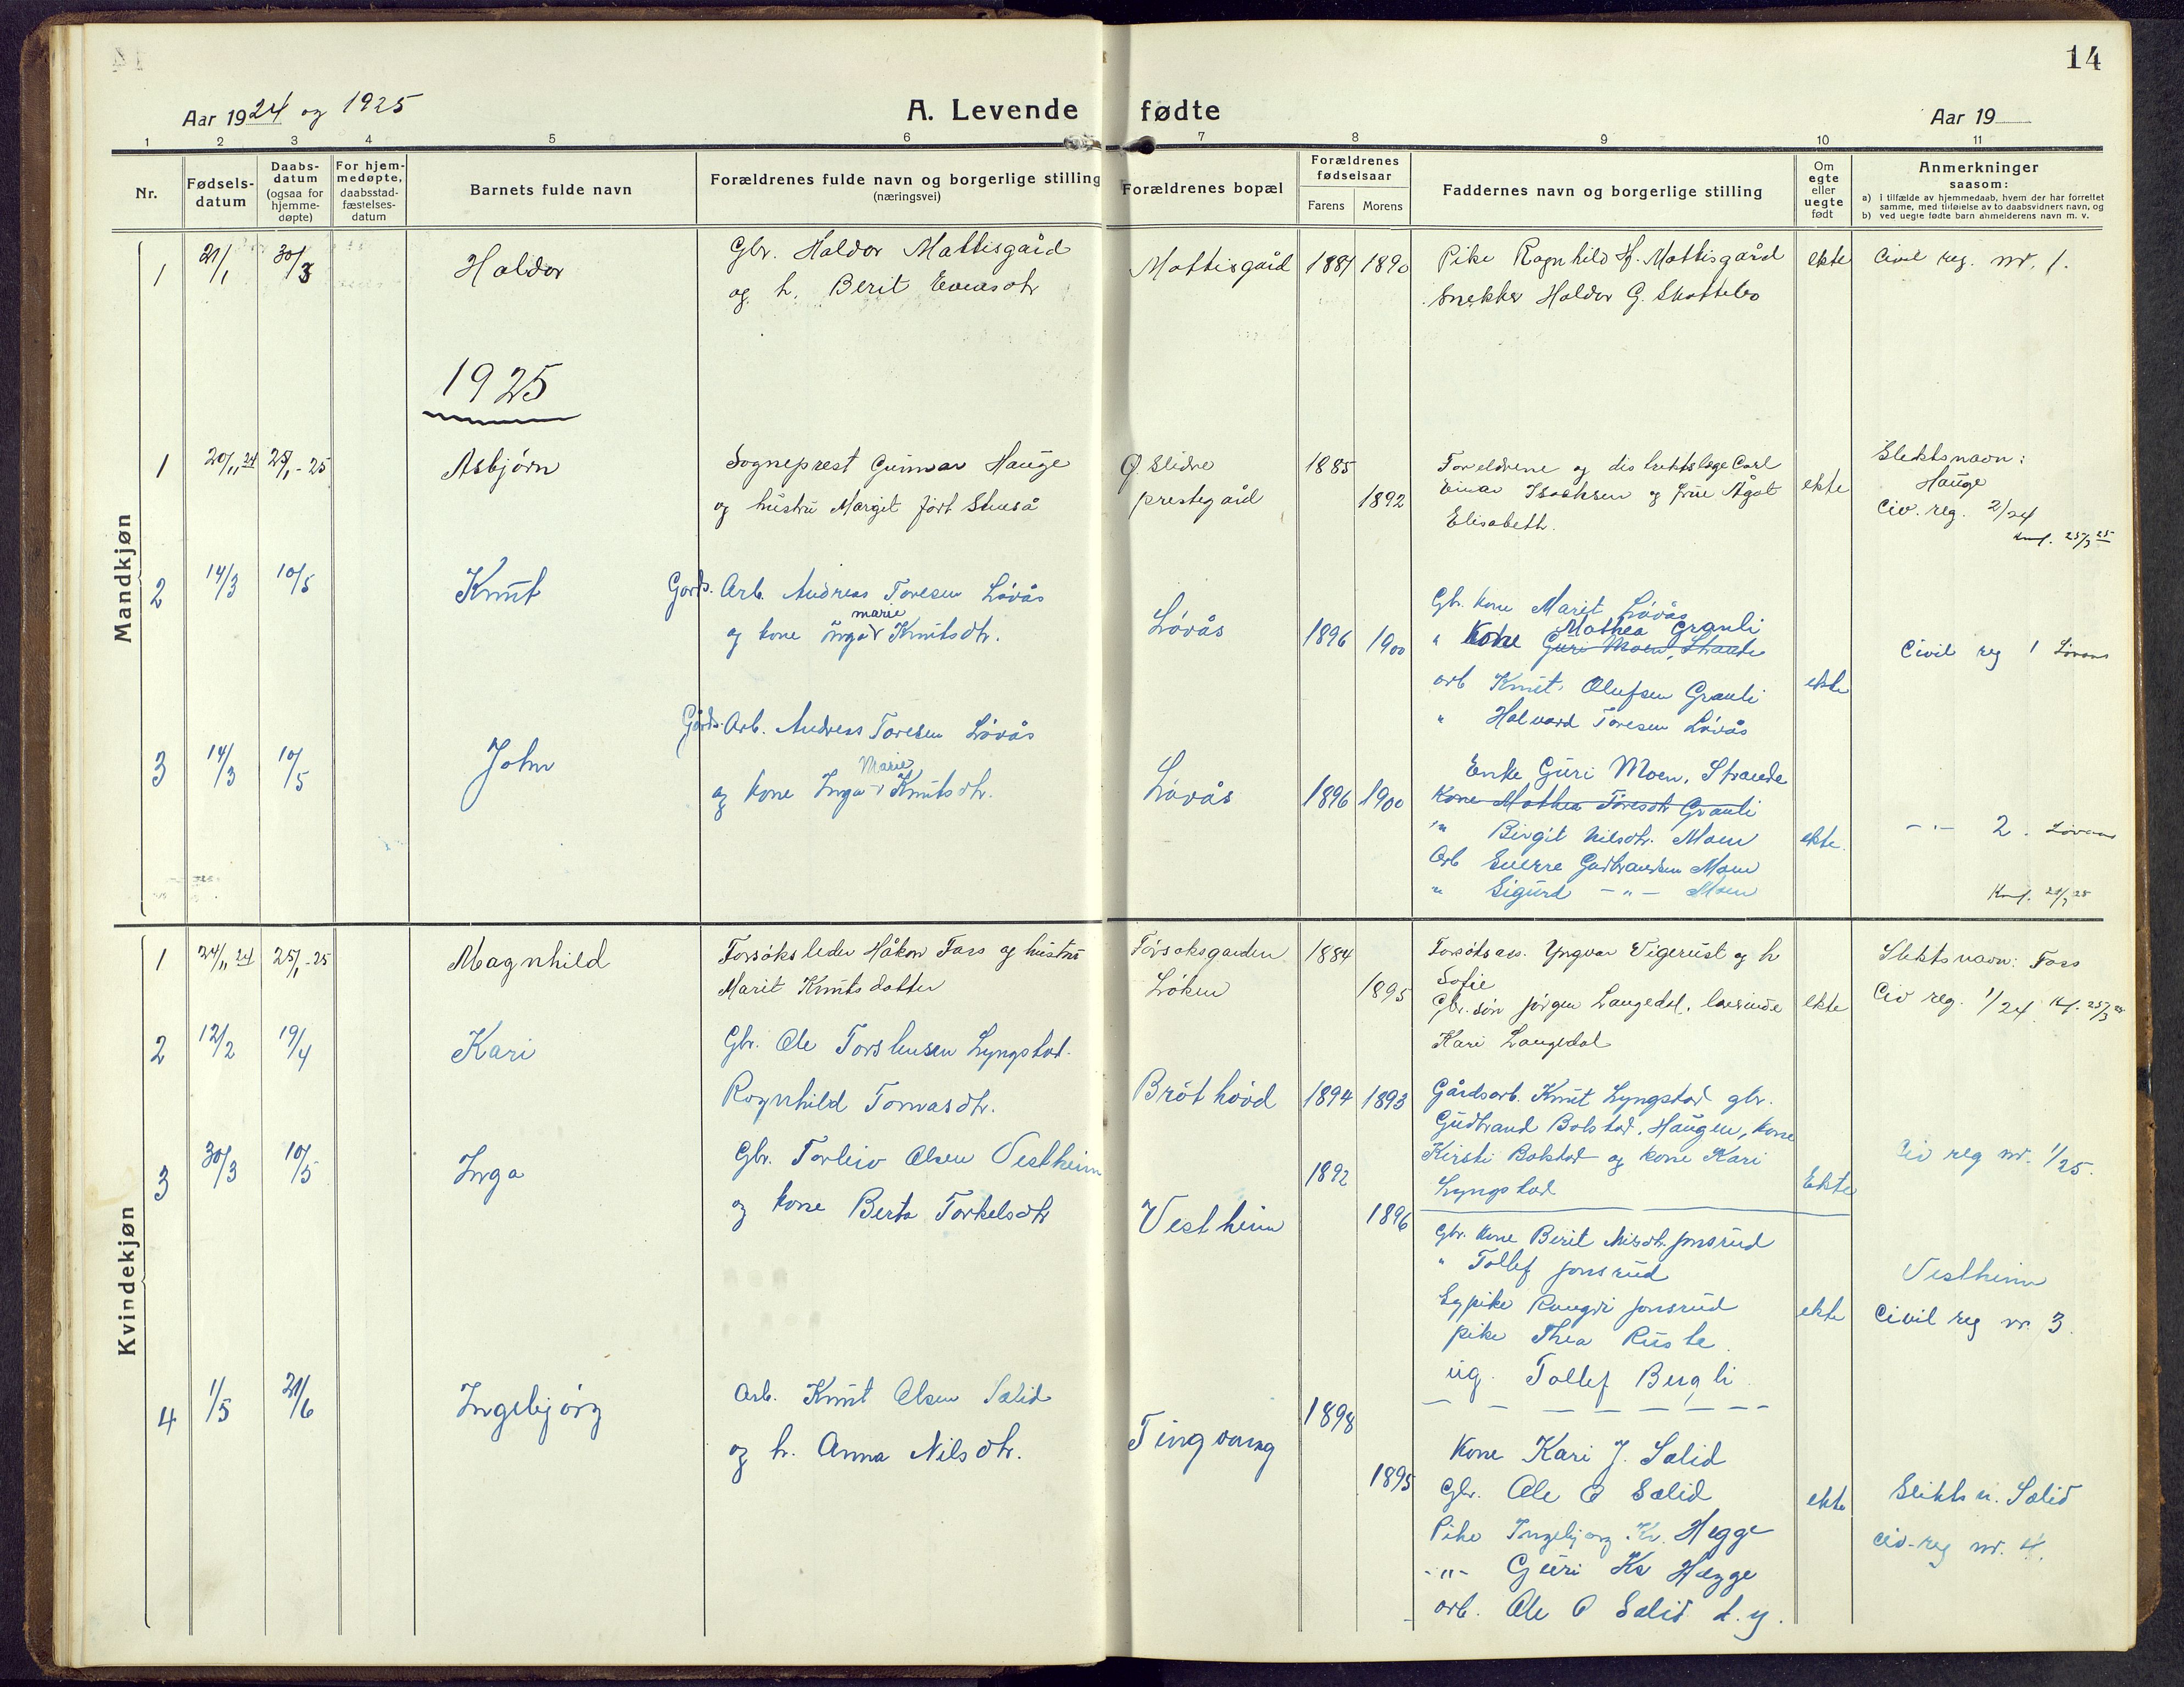 14
Aar 1924 og 1925
A. Levende fødte
Aar 19
1 2 3 4 5 6 7 8 9 10 11
Nr.
Fødsels-
datum
Daabs-
datum
(ogsaa for
hjemme-
døpte)
For hjem-
medøpte,
daabsstad-
fæstelses-
datum
Barnets fulde navn
Forældrenes fulde navn og borgerlige stilling
(næringsvei)
Forældrenes bopæl
Forældrenes
fødselsaar
Farens Morens
Faddernes navn og borgerlige stilling
Om
egte
eller
uegte
født
Anmerkninger
saasom:
a) i tilfælde av hjemmedaab, hvem der har forrettet
samme, med tilføielse av to daabsvidners navn, og
b) ved uegte fødte barn anmelderens navn m. v.
Mandkjøn
1 21/1 30/3 Haldor
Gbr. Haldor Mattisgård
og h. Berit
Mattisgård 1884 1890
Pike Ragnhild H. Mattisgård
Snekker Haldor G. Skattebo
ekte
Civil reg. nr. 1.
1925
1 20/11 24 25/1-25 Asbjørn
Sogneprest Gunnar Hauge
og hustru Margit født
Ø. Slidre
prestegård
1885
1892
Foreldrene og distriktslæge Carl
Einar Isachsen og frue Ågot
Elisabeth.
ekte
Slektsnavn:
Hauge
Civ. reg. 2/24
25/3 25
2 14/3 10/5 Knut
Gards. Arb. Andreas Toresen Løvås
marie
og kone Inga Knutsdtr.
Løvås 1896 1900
Gbr. kone Marit Løvås
Mathea Grauli
" Kone Guri Moen, Strande
arb Knut Olufsen Grauli
" Halvard Toresen Løvås
ekte
Civil reg 1 Løvaas
3 14/3 10/5 John
Gårds. Arb. Andreas Toresen Løvås
Marie
og kone Inga Knutsdtr.
Løvås 1896 1900
Enke Guri Moen, Strande
Kone Mathea Toresdtr Grauli
" Birgit Nilsdtr. Moen
Arb Sverre Gudbrandsen Moen
" Sigurd - " - Moen
ekte.
- " - 2. Løvaas
Kvindekjøn
1 24/11 24 25/1-25 Magnhild
Forsøksleder Håkon Foss og hustru
Marit Knutsdatter
Forsøksgarden
Løken
1884
1895
Forsøksass. Yngvar Vigerust og h
Sofie
Gbr. søn Jørgen Langedal, lærerinde
Kari Langedal
ekte
Slektsnavn: Foss
Civ reg. 1/24
2 12/2 19/4 Kari
Gbr. Ole Lyngstad.
Ragnhild Tomasdtr.
Bröthövd 1894 1893
Gårdsarb. Knut Lyngstad gbr.
Gudbrand Bolstad, Haugen, kone
Kirsti Bolstad og kone Kari
Lyngstad
Ekte
Civ reg nr. 1/25.
3 30/3 10/5 Inga
Gbr. Torleiv Olsen Vestheim
og kone Berta Torkelsdtr
Vestheim
1892
1896
Gbr. kone Berit Nilsdtr. Jonsrud
" Tollef Jonsrud
pike Rangdi Jonsrud
pike Thea Ruste.
ug. Tollef Bergli
ekte
Vestheim
Civil reg nr. 3.
4 1/5 21/6 Ingebjørg
Arb. Knut Olsen Sælid
og h. Anna Nilsdtr.
Tingvang
1898
1895
Kone Kari J. Sælid
Gbr. Ole O Sælid
Pike Ingebjørg Kr. Hegge
- " - Guri Kr Hegge
arb. Ole O Sælid d. y.
ekte
Slekts n. Sælid
Civ-reg nr. 4.